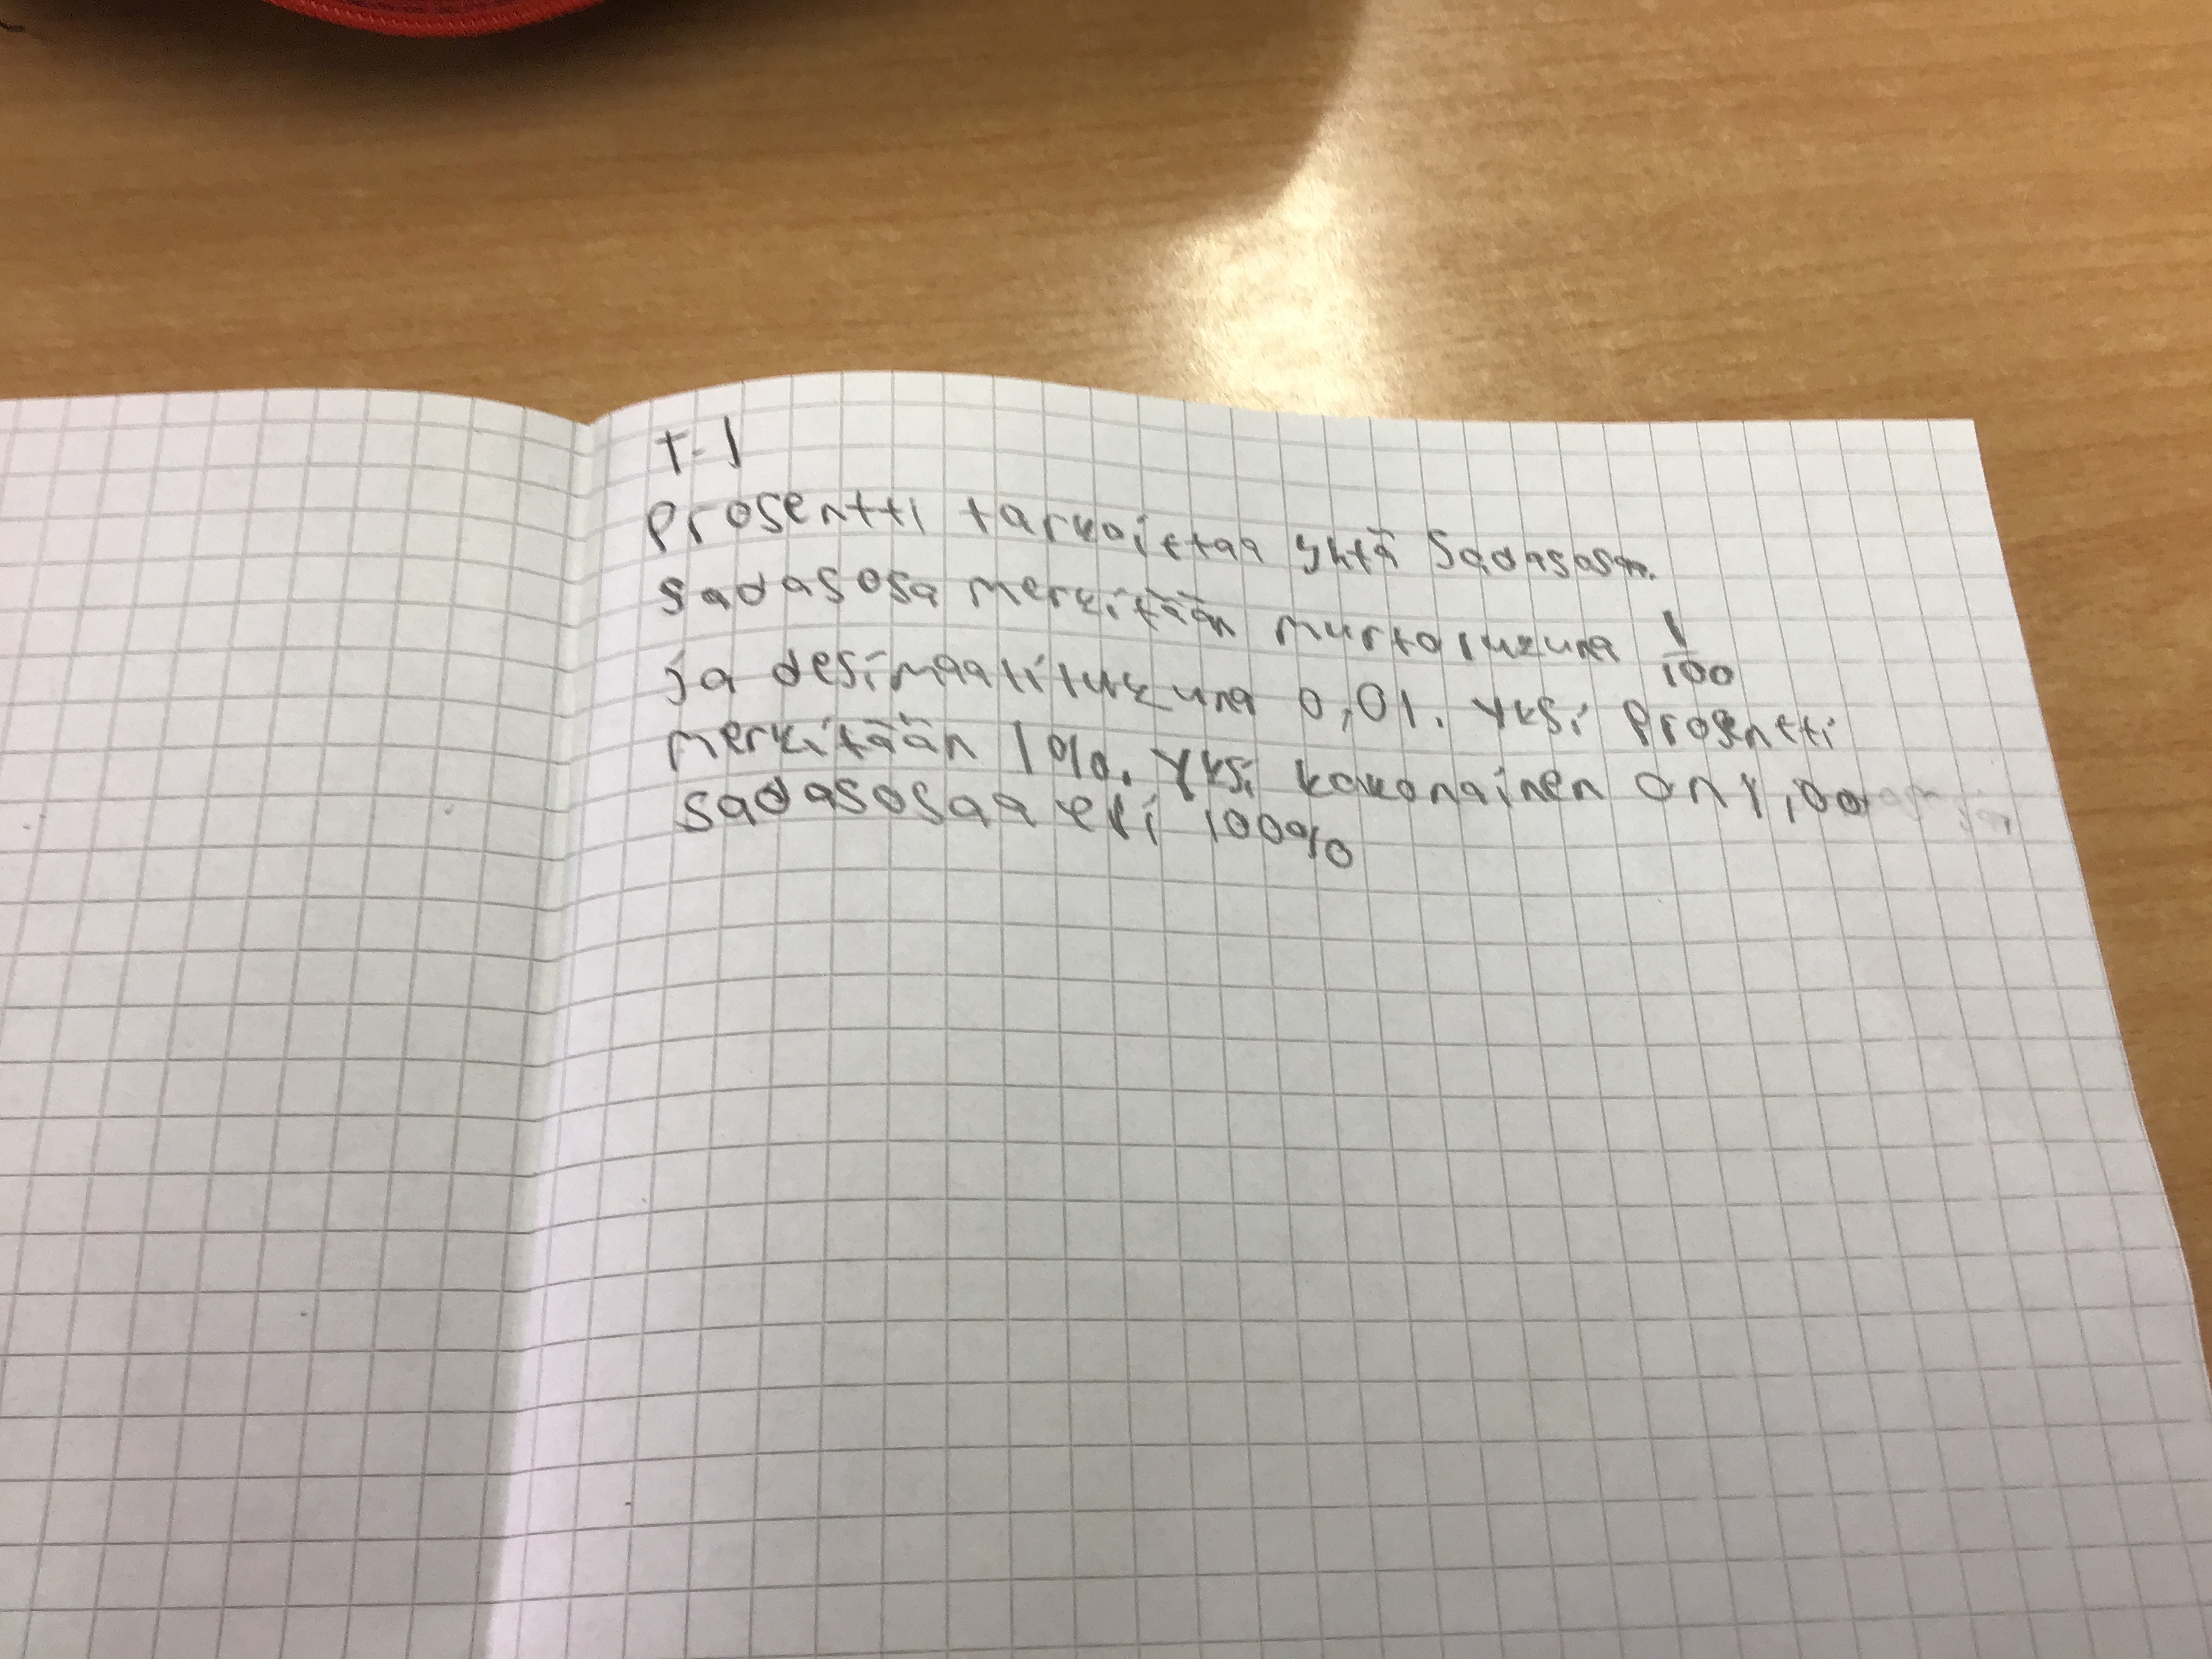 T-1
Prosentti tarkoittaa yhtä Sadasosa.
sadasosa merkitään murtolukuna 1/100
ja desimaalilukuna 0,01. Yksi Prosentti
merkitään 1%. Yksi kokonainen on 1,00
sadasosaa eli 100%